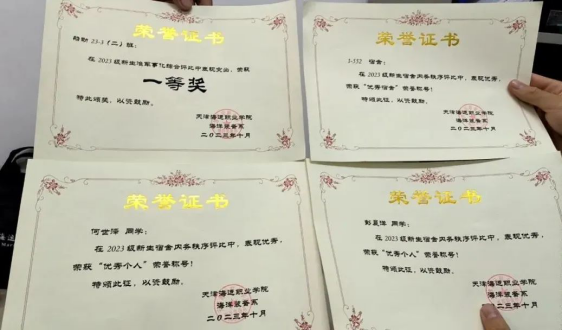 荣誉证书
船舶23-3（二）班：
在2023级新生准军事化综合评比中表现突出，荣获
一等奖
特此颁奖，以资鼓励。
天津海运职业学院
海洋装备系
二〇二三年十月
荣誉证书
1-332 宿舍：
在2023级新生宿舍内务秩序评比中，表现优秀，
荣获“优秀宿舍”荣誉称号！
特颁此证，以资鼓励。
天津海运职业学院
海洋装备系
二〇二三年十月
荣誉证书
何世泽 同学：
在2023级新生宿舍内务秩序评比中，表现优秀，
荣获“优秀个人”荣誉称号！
特颁此证，以资鼓励。
天津海运职业学院
海洋装备系
二〇二三年十月
荣誉证书
同学：
在2023级新生宿舍内务秩序评比中，表现优秀，
荣获“优秀个人”荣誉称号！
特颁此证，以资鼓励。
天津海运职业学院
海洋装备系
二〇二三年十月